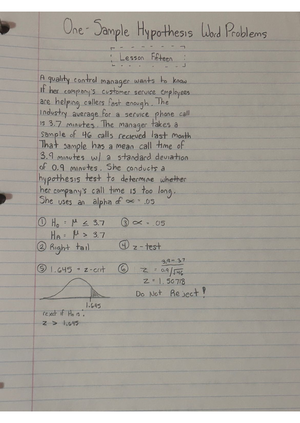 One-Sample Hypothesis Word Problems
Lesson Fifteen
A quality control manager wants to know
if her company's customer service employees
are helping callers fast enough. The
industry average for a service phone call
is 3.7 minutes. The manager takes a
sample of 46 calls recieved last month
That sample has a mean call time of
3.9 minutes w/ a standard deviation
of 0.9 minutes. She conducts a
hypothesis test to determine whether
her company's call time is too long.
She uses an alpha of ∝ = .05
① H₀ = μ ≤ 3.7 ③ ∝ = .05
Hₐ = μ > 3.7
② Right tail ④ z-test
⑤ 1.645 = z-crit ⑥ z = 3.9 - 3.7 / 0.9/√46
z = 1.50718
1.645 Do Not Reject!
reject if
z > 1.645